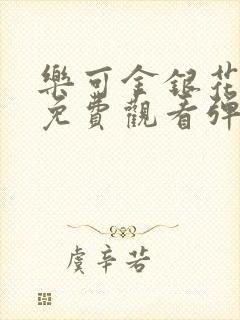 樂可金銀花
免費觀看彈
虞辛若